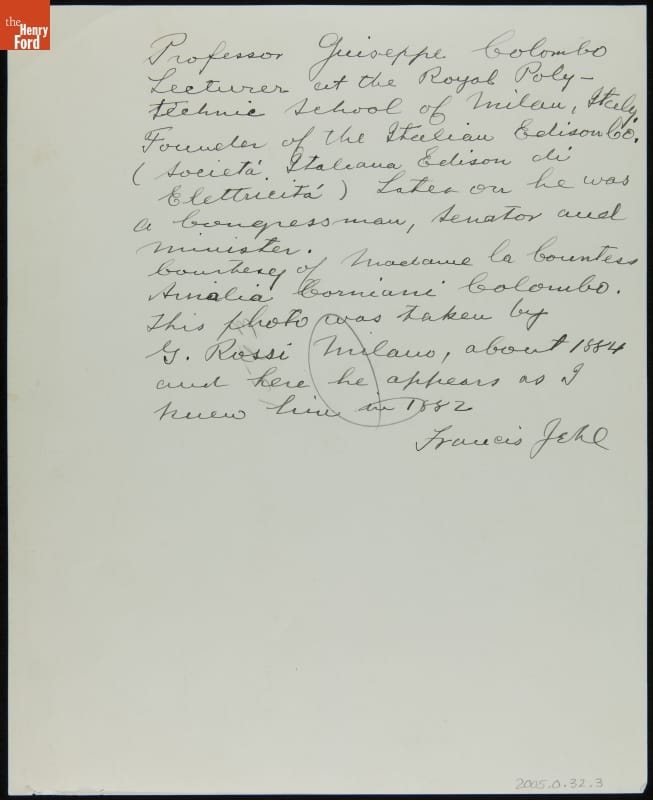 the
Henry
Ford
Professor Guiseppe Colombo
Lecturer at the Royal Poly-
technic School of Milan, Italy.
Founder of the Italian Edison Co.
(Societá Italiana Edison di
Elettricitá) Later on he was
a Congressman, Senator and
Minister.
Courtesy of Madame la Countess
Amalia Corniani Colombo.
This photo was taken by
G. Rossi Milano, about 1884
and here he appears as I
knew him in 1882
Francis Jehl
2005.0.32.3